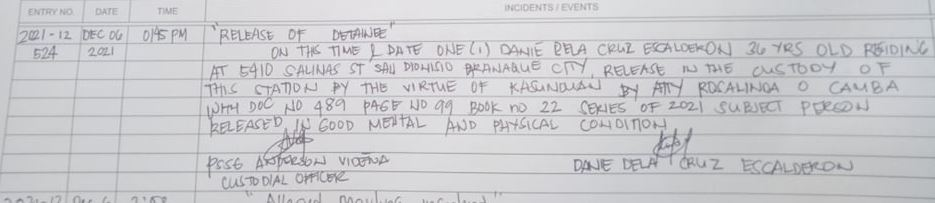 ENTRY NO. DATE TIME INCIDENTS / EVENTS
2021-12 DEC 06 0145 PM "RELEASE OF DETAINEE"
524 2021 ON THIS TIME & DATE ONE (1) DANIE DELA CRUZ ESCALDERON 36 YRS OLD RESIDING
AT 5410 SALINAS ST SAN DIONISIO PARANAQUE CITY, RELEASE IN THE CUSTODY OF
THIS STATION BY THE VIRTUE OF KASUNDUAN BY ATTY ROSALINDA O CAMBA
WITH DOC NO 489 PAGE NO 99 BOOK NO 22 SERIES OF 2021 SUBJECT PERSON
RELEASED IN GOOD MENTAL AND PHYSICAL CONDITION
PSSG ANDERSON
CUSTODIAL OFFICER
DANIE DELA CRUZ ESCALDERON